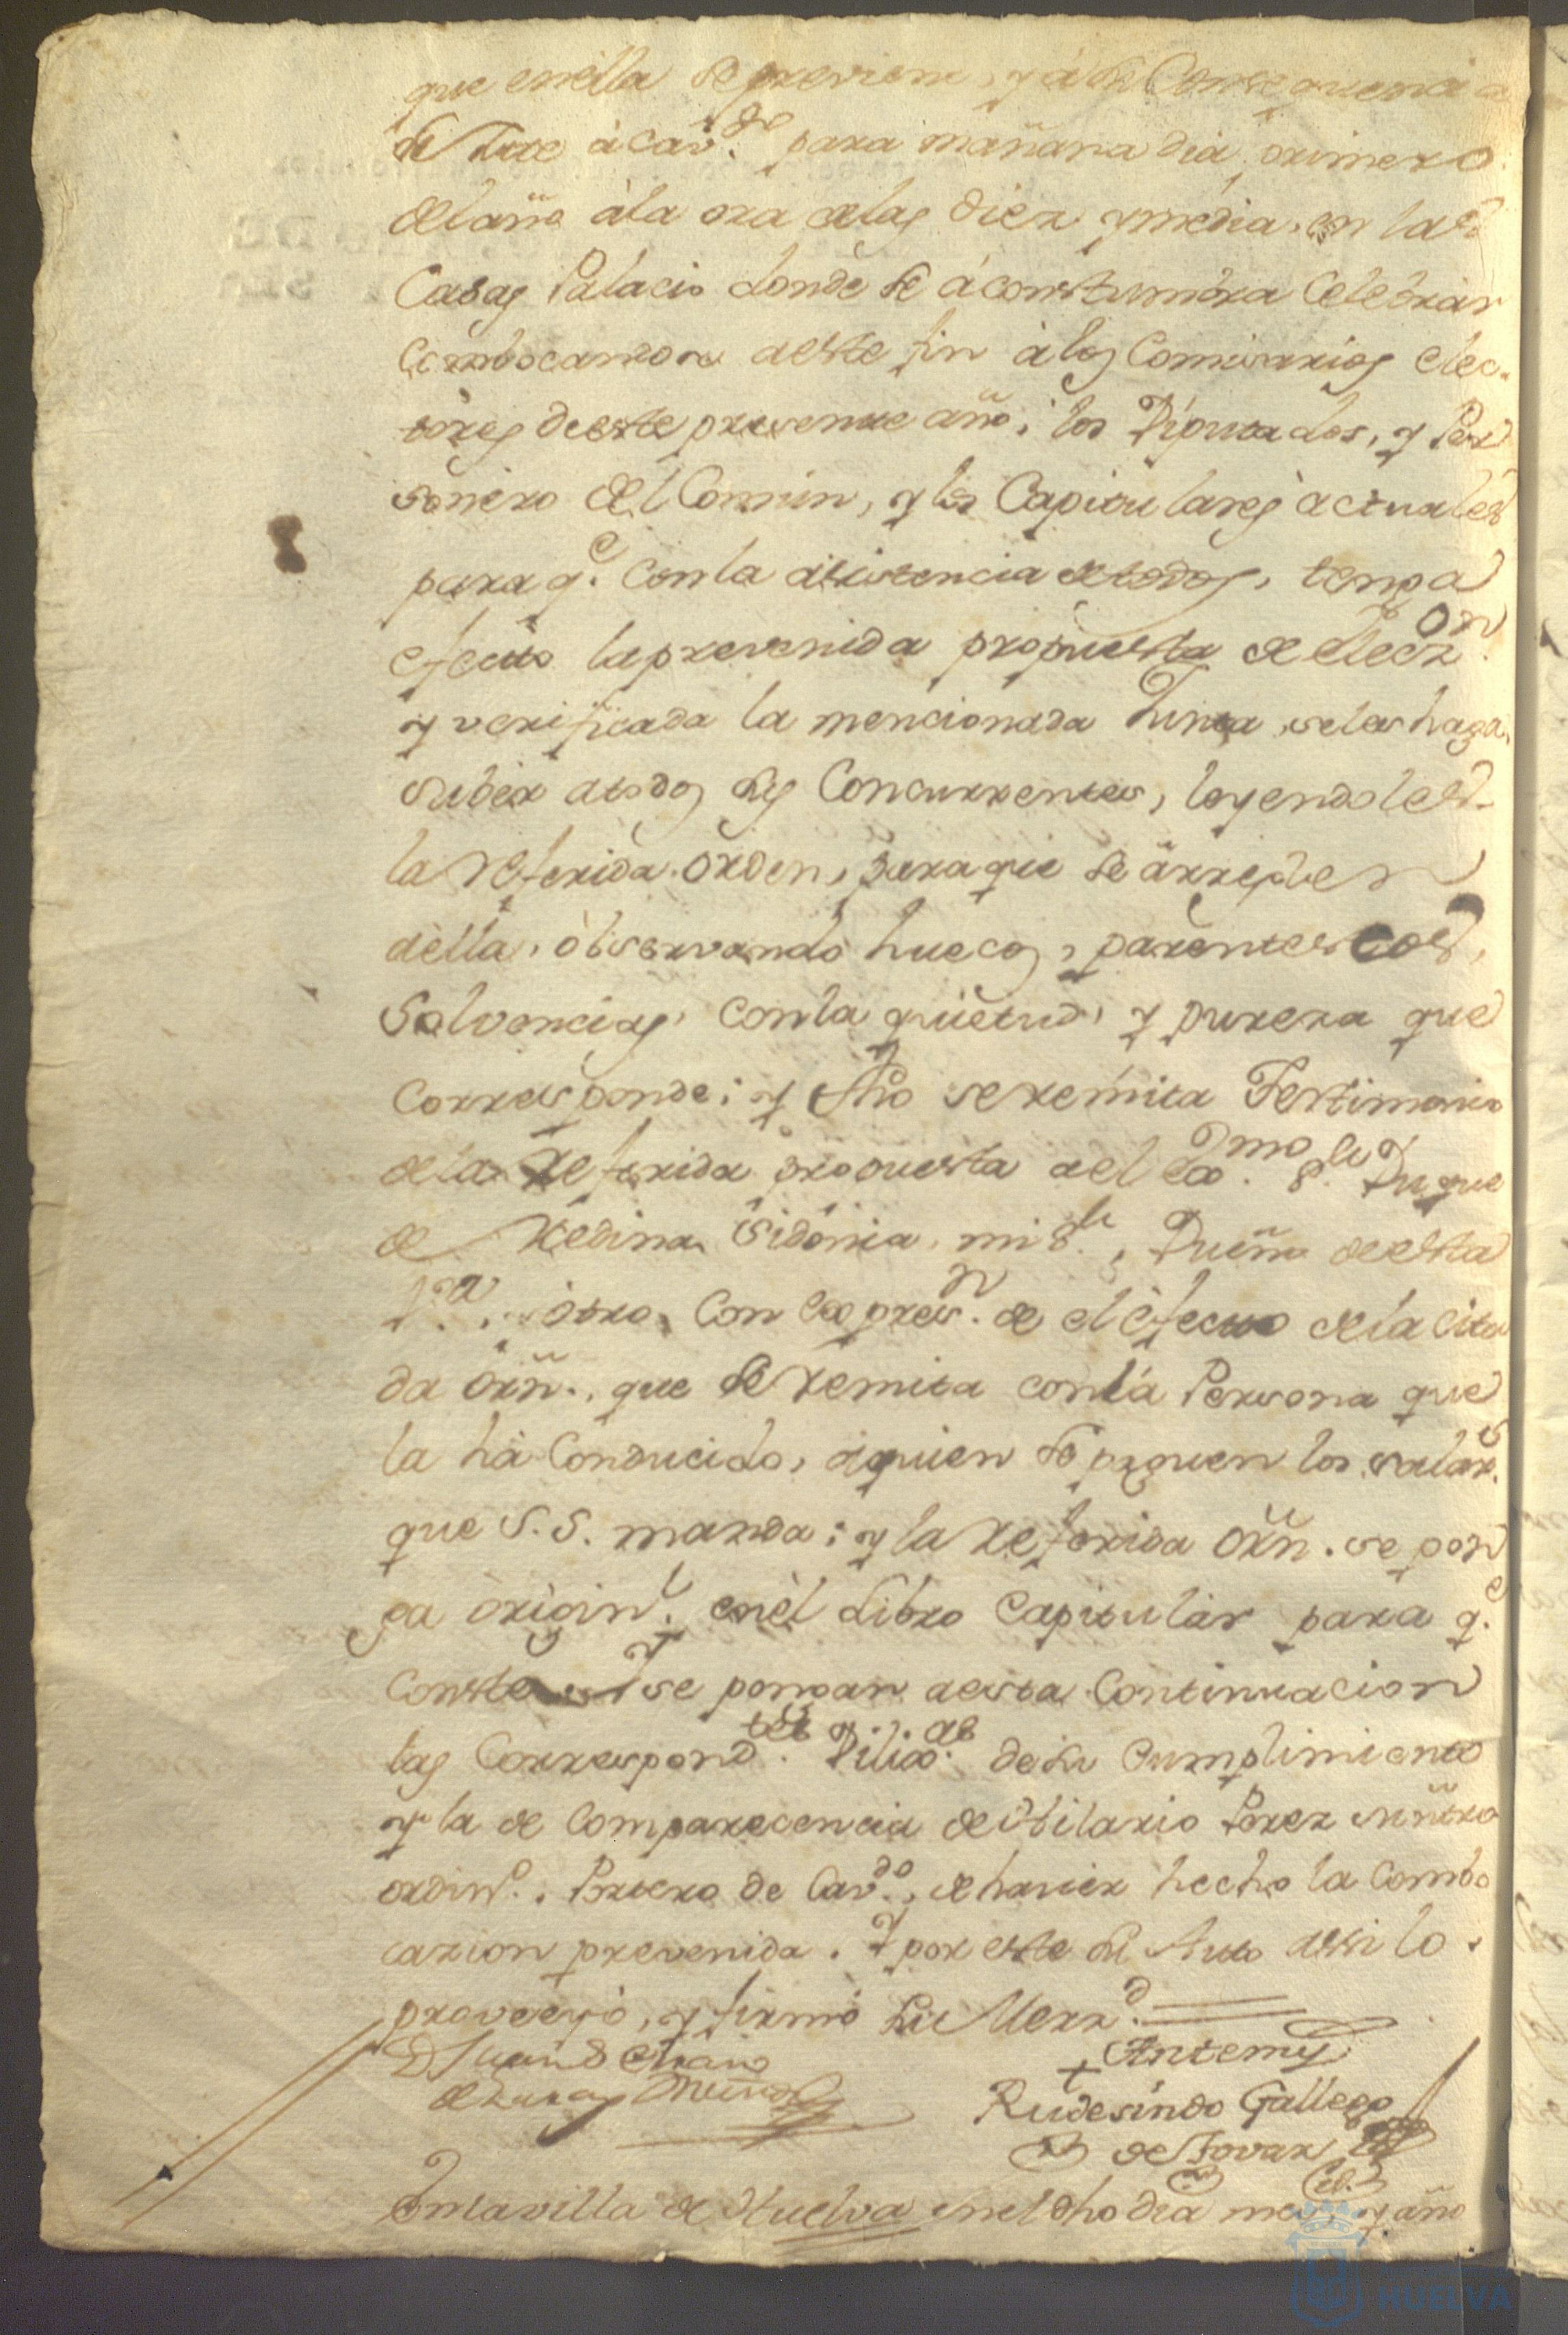 que enella se previene, y à su Consequencia
se Cite à Cav.do para mañana dia primero
del año àla ora delas diez y media, en las
Casas Palacio donde se àcostumbra Celebrar
Combocandose aeste fin à los Comisarios elec-
tores deeste presente año, los Diputados, y Per
sonero del Comun, y los Capitulares àctuales
para q.e Conla asistencia detodos, tenga
efecto laprevenida propuesta de elecz.on
y verificada la mencionada Junta, seles haga
saber atodos los Concurrentes, leyendoles
la referida orden, para que se àrreglen
àella, òbservando huecos, parentescos,
Solvencias, conla quietud, y pureza que
Corresponde; y fho se remita Testimonio
dela Referida propuesta ael Exmo. S.or Duque
de Medina Sidonia, mi S.or, Dueño deesta
V.a, òtro, Con expres.n de el èfecto dela cita
da orñ., que se remita conla Persona que
la hà Conducido, àquien se paguen los salar.s
que S. S. manda; y la Referida orñ. se pon
ga òrigin.l enèl Libro Capitular para q.e
Conste. Y se pongan aesta Continuacion
las Correspond.tes Dilig.as de su Cumplimiento
y la de Comparecencia de Hilario Perez Miñtro
ordin.o, Portero de Cav.do, de haver hecho la Combo
cazion prevenida. Y por este su Auto assi lo
proveeyò, y firmò su Merz.d
Antemy
Rudesindo Gallego
de Tovar
Enlavilla de Huelva enel dho dia mes, y año
HUELVA